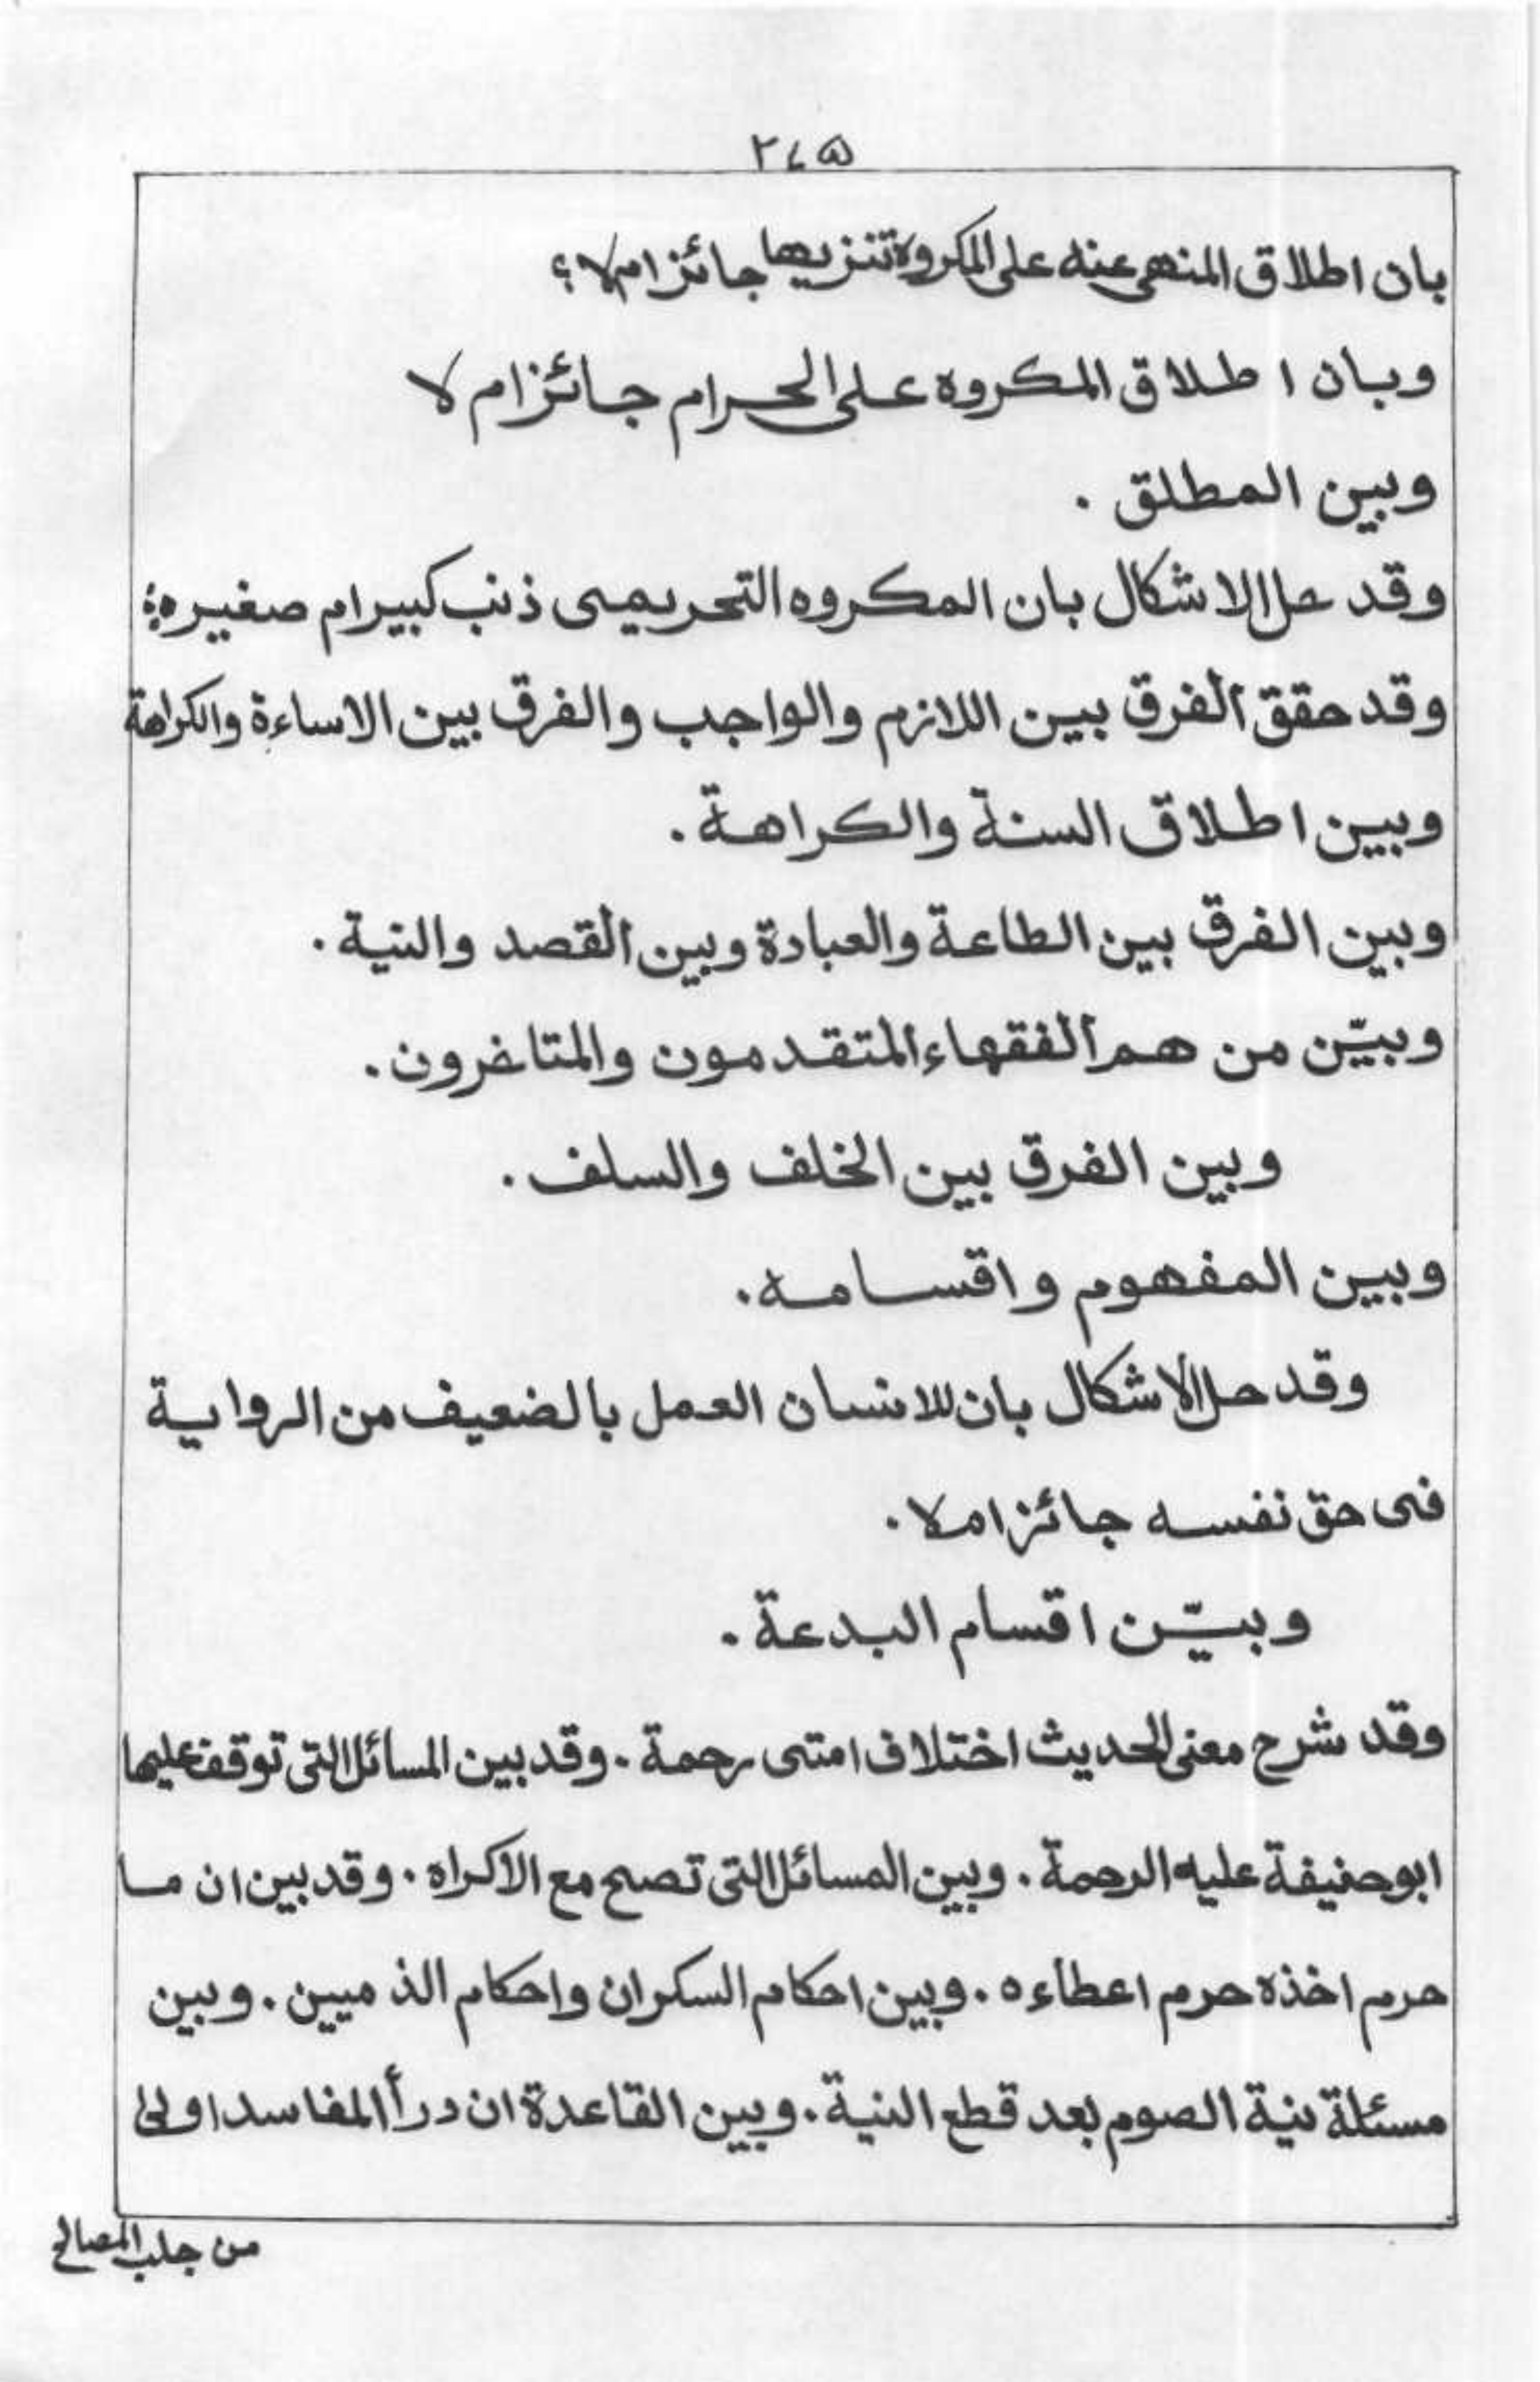 ٢٤٥
بان اطلاق المنهى عنه على المكروه تنزيها جائز ام لا؟
وبان اطلاق المكروه على الحرام جائز ام لا
وبين المطلق .
وقد حل الاشكال بان المكروه التحريمى ذنب كبير ام صغيره؟
وقد حقق الفرق بين اللازم والواجب والفرق بين الاساءة والكراهة
وبين اطلاق السنة والكراهة .
وبين الفرق بين الطاعة والعبادة وبين القصد والنية .
وبيّن من هم الفقهاء المتقدمون والمتاخرون .
وبين الفرق بين الخلف والسلف .
وبين المفهوم واقسامه .
وقد حل الاشكال بان للانسان العمل بالضعيف من الرواية
فى حق نفسه جائز ام لا .
وبيّن اقسام البدعة .
وقد شرح معنى الحديث اختلاف امتى رحمة . وقد بين المسائل التى توقف عليها
ابو حنيفة عليه الرحمة . وبين المسائل التى تصح مع الاكراه . وقد بين ان ما
حرم اخذه حرم اعطاءه . وبين احكام السكران واحكام الذميين . وبين
مسئلة نية الصوم بعد قطع النية . وبين القاعدة ان درأ المفاسد اولى
من جلب المصالح